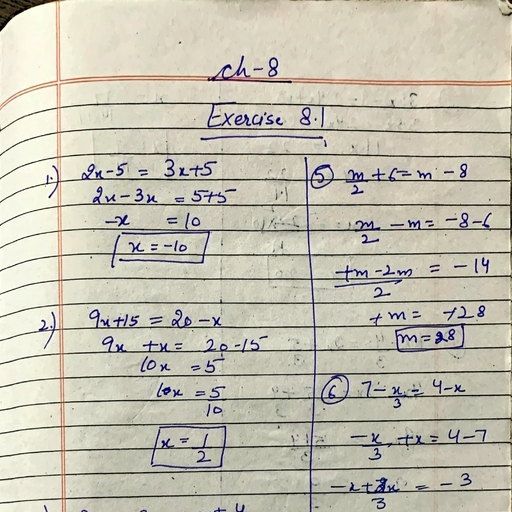 ch-8
Exercise 8.1
1.) 2x-5 = 3x+5
2x-3x = 5+5
-x = 10
x = -10
2.) 9x+15 = 20-x
9x +x = 20-15
10x = 5
10x = 5/10
x = 1/2
5 m/2 + 6 = m - 8
m/2 - m = -8-6
+m-2m/2 = -14
+m = +28
m = 28
6 7-x/3 = 4-x
-x/3 +x = 4-7
-x+3x/3 = -3